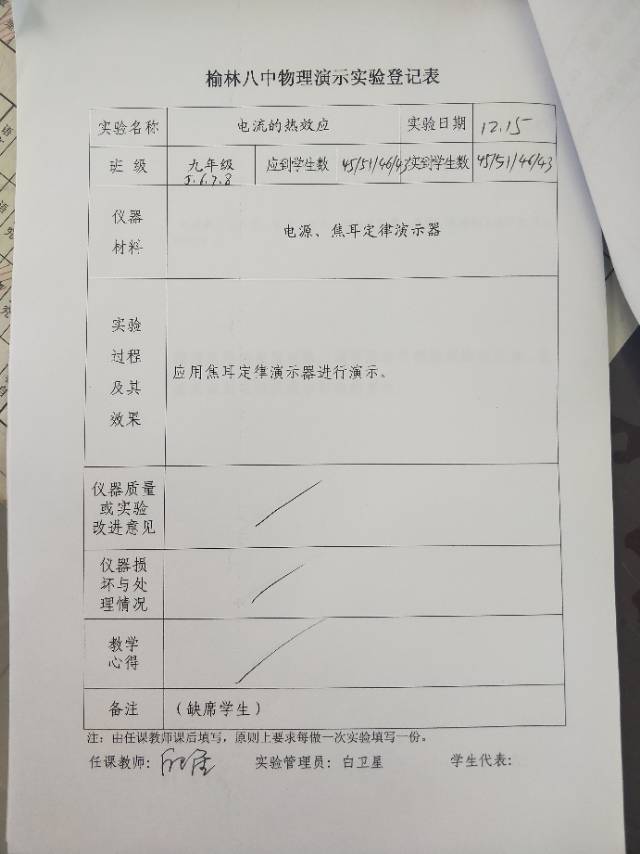 榆林八中物理演示实验登记表
实验名称 电流的热效应 实验日期 12.15
班 级 九年级 5.6.7.8 应到学生数 45/51/46/43 实到学生数 45/51/46/43
仪器
材料
电源、焦耳定律演示器
实验
过程
及其
效果
应用焦耳定律演示器进行演示。
仪器质量
或实验
改进意见
仪器损
坏与处
理情况
教学
心得
备注 （缺席学生）
注：由任课教师课后填写，原则上要求每做一次实验填写一份。
任课教师： 实验管理员：白卫星 学生代表：